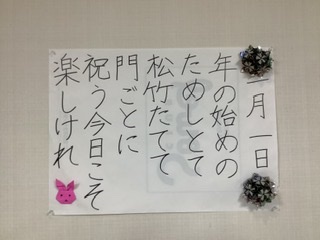 一月一日
年の始めの
ためしとて
松竹たてて
門ごとに
祝う今日こそ
楽しけれ